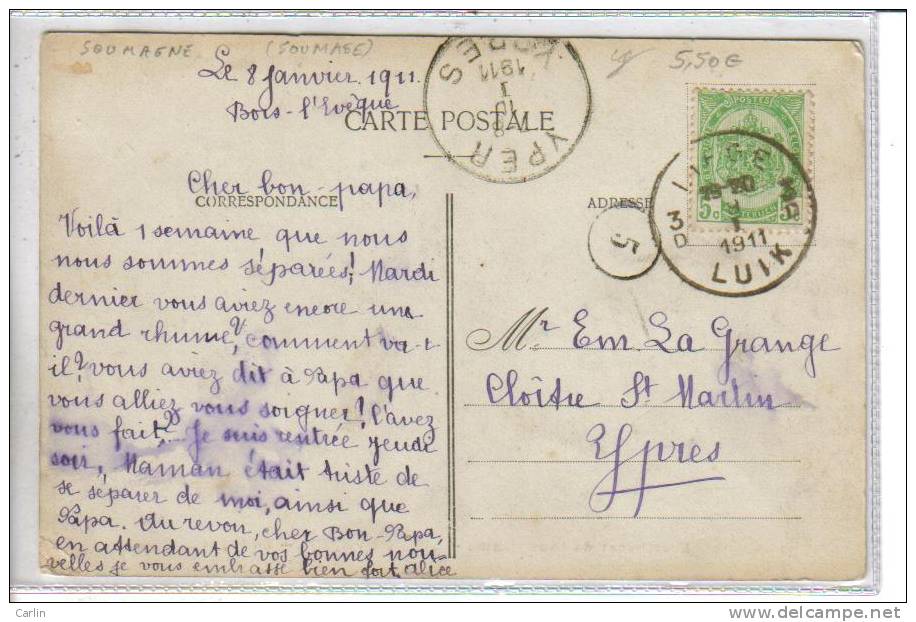 SOUMAGNE (SOUMAGE) 5,50€
Le 8 Janvier 1911.
Bois-l'Evêque
CARTE POSTALE
YPRES
1911
YPER
POSTES
5c
LIEGE
3D
1911
LUIK
Cher bon-papa,
CORRESPONDANCE
ADRESSE
5
Voilà 1 semaine que nous
nous sommes séparées! Mardi
dernier vous aviez encore une
grand rhume? Comment va-t
il? vous aviez dit à Papa que
vous alliez vous soigner! l'avez
vous fait? Je suis rentrée jeudi
soir, Maman était triste de
se séparer de moi, ainsi que
Papa. Au revoir, cher Bon-Papa,
en attendant de vos bonnes nou-
velles je vous embrasse bien fort, alice
Mr Em La Grange
Cloître St Martin
Ypres
Carlin
http://www.delcampe.net